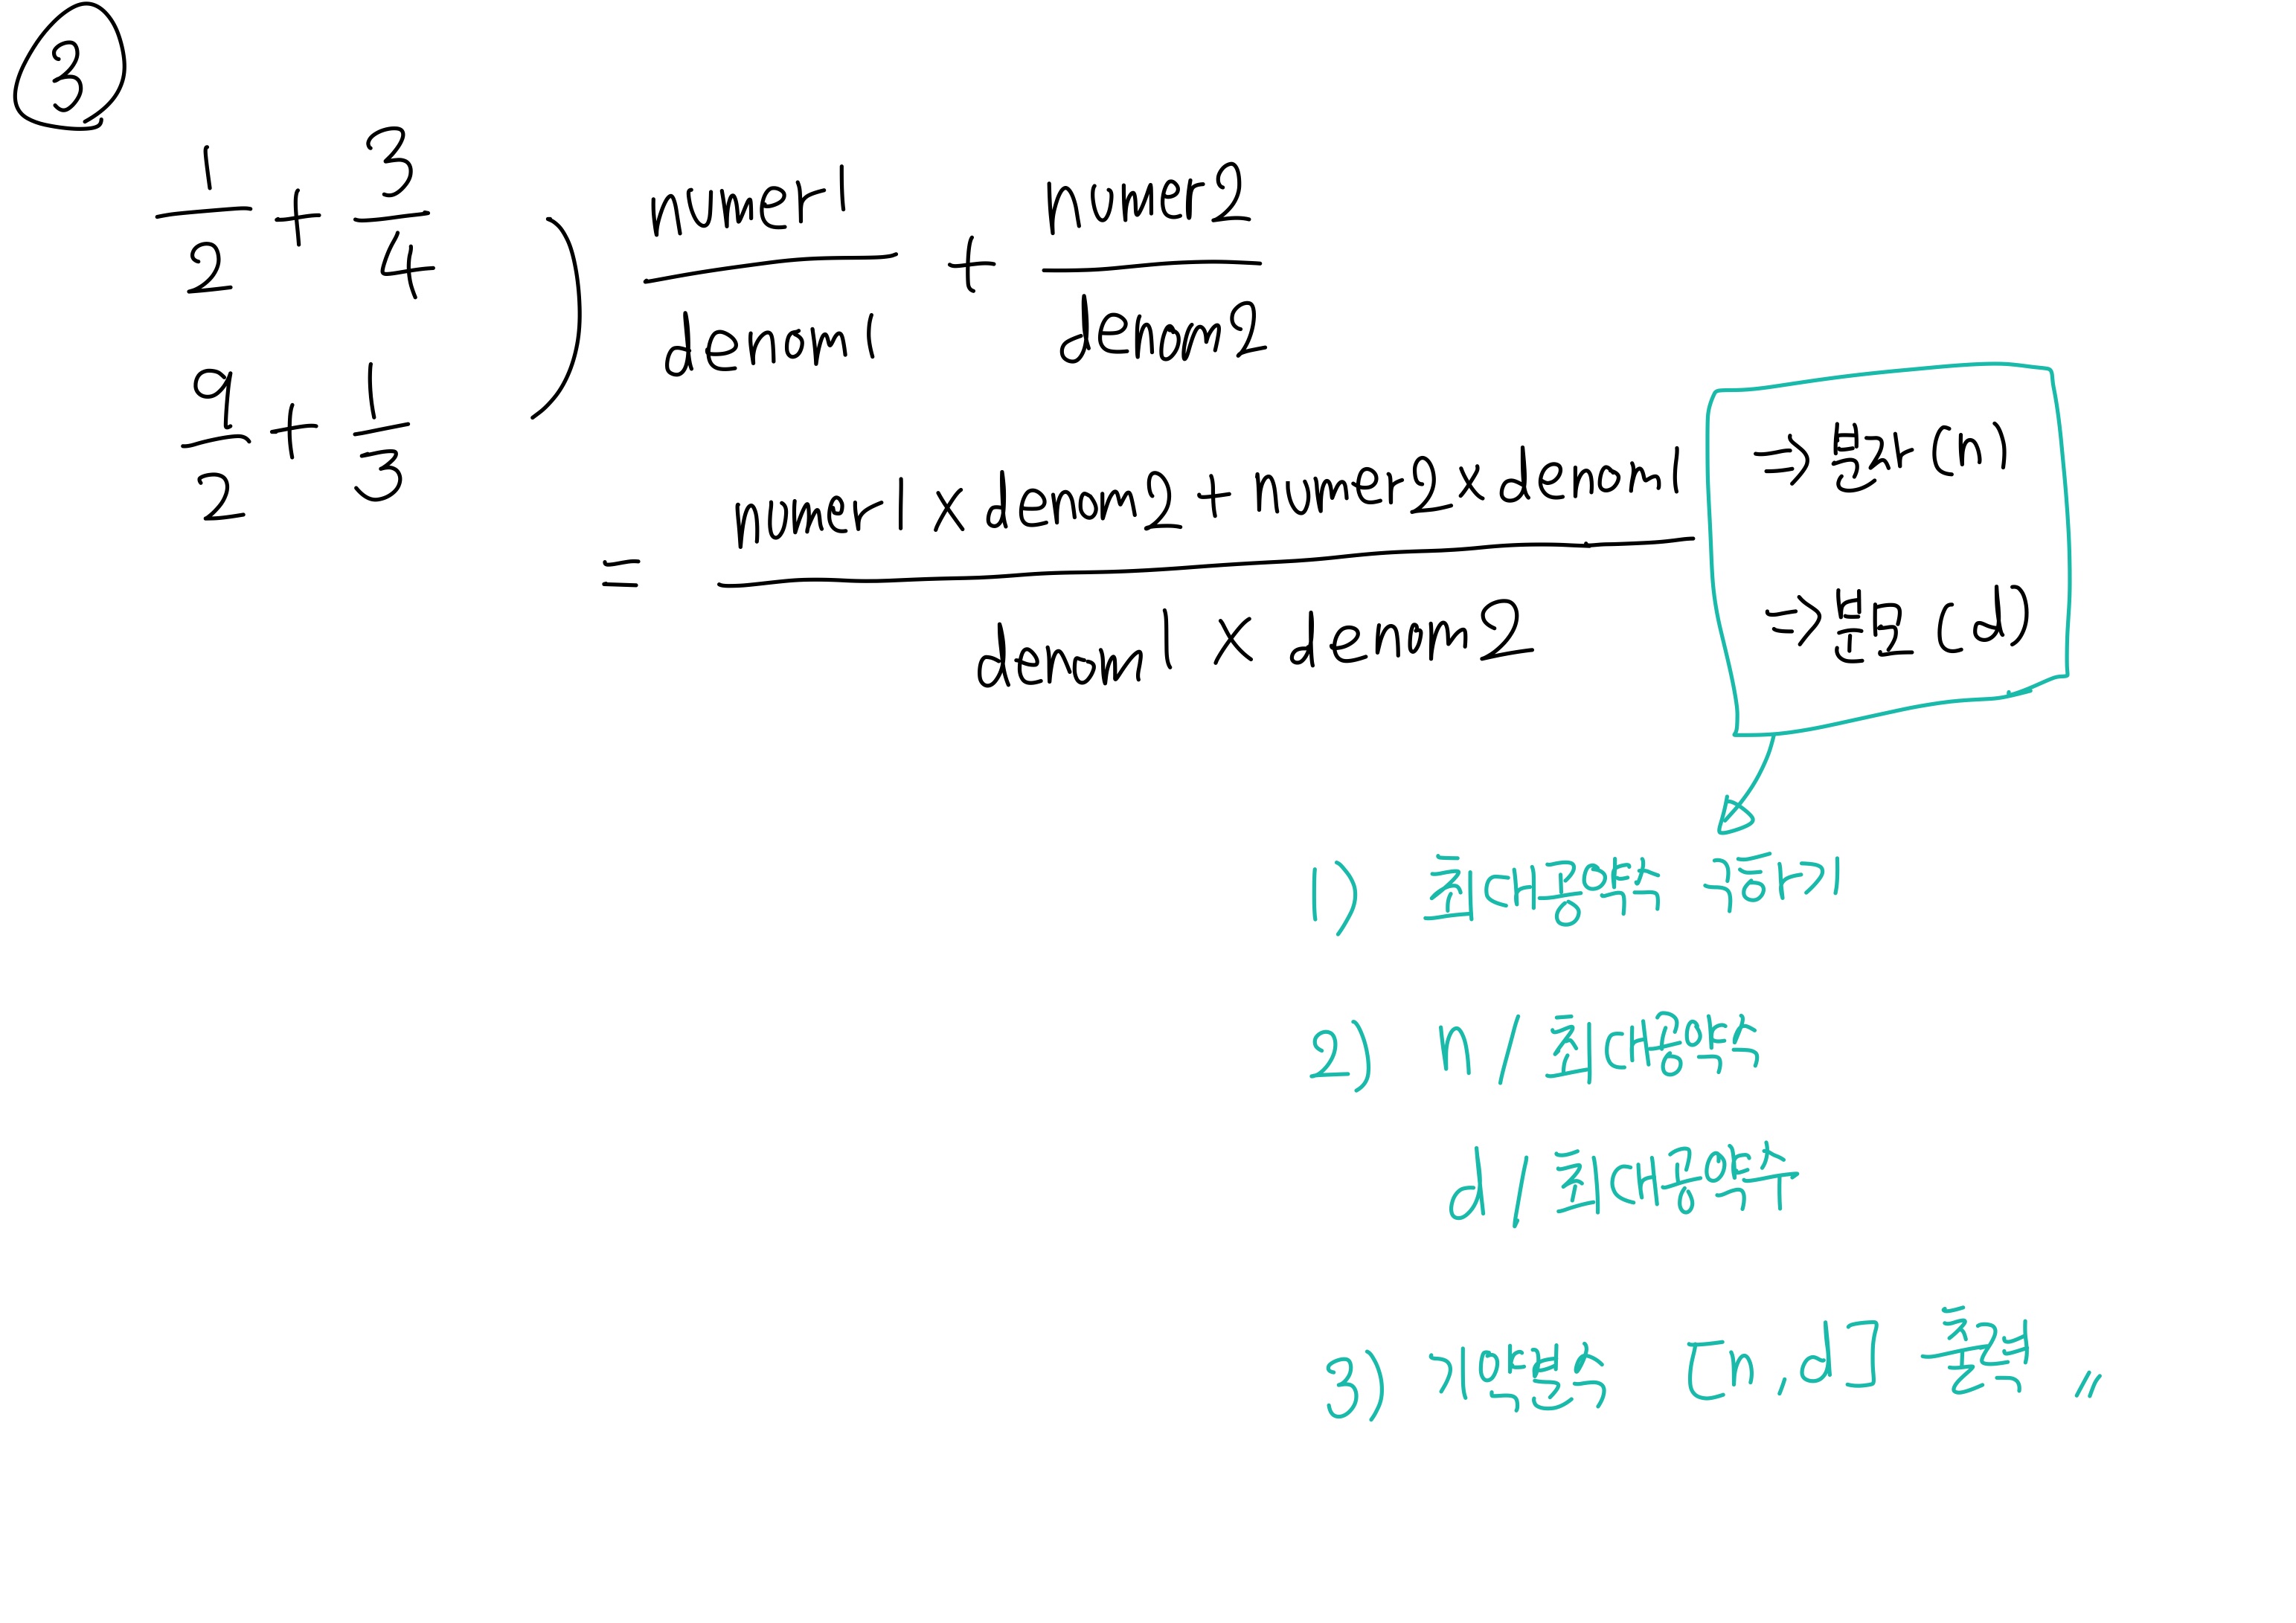 ③
1/2 + 3/4
9/2 + 1/3
numer1/denom1 + numer2/denom2
= (numer1 × denom2 + numer2 × denom1)/(denom1 × denom2)
⇒ 분자 (n)
⇒ 분모 (d)
1) 최대공약수 구하기
2) n / 최대공약수
d / 최대공약수
3) 기약분수 [n, d] 출력 〃